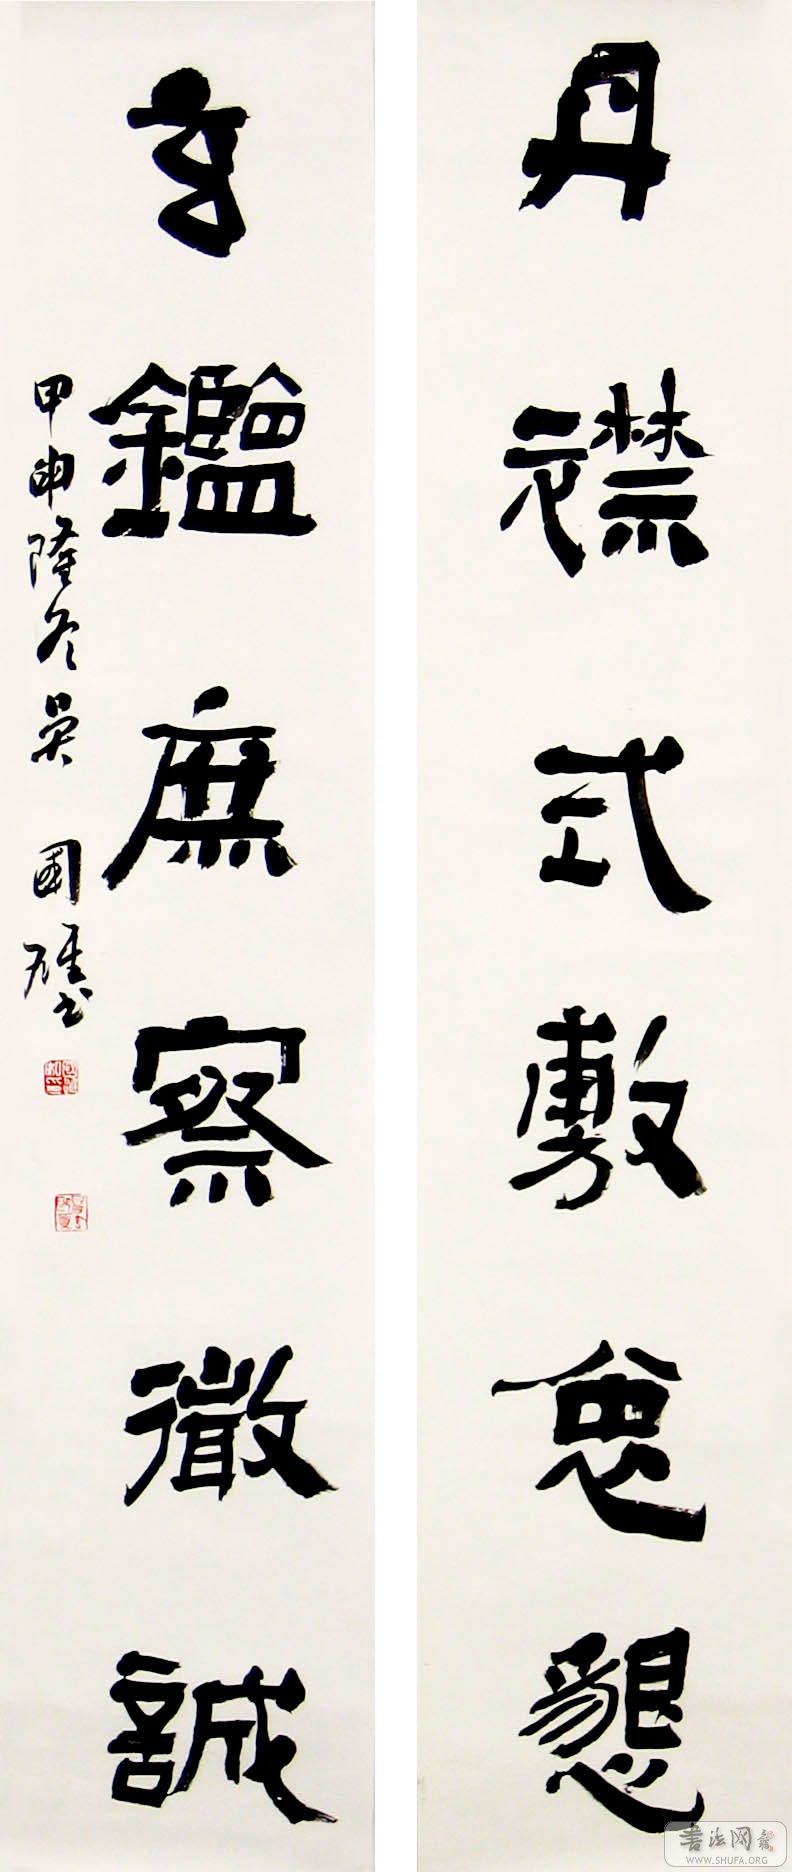 丹襟式敷懇
玄鑑庶察微誠
甲申隆冬吴國雄书
书法网
WWW.SHUFA.ORG